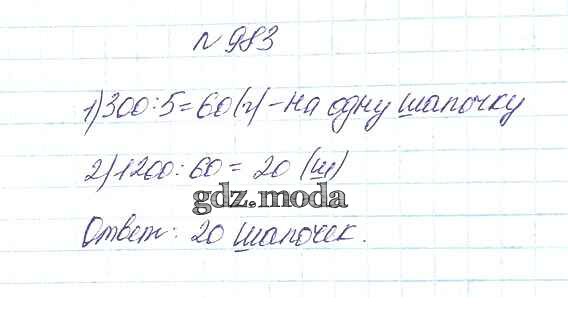 № 983
1) 300 : 5 = 60 (г) – на одну шапочку
2) 1200 : 60 = 20 (ш)
gdz.moda
Ответ: 20 шапочек.